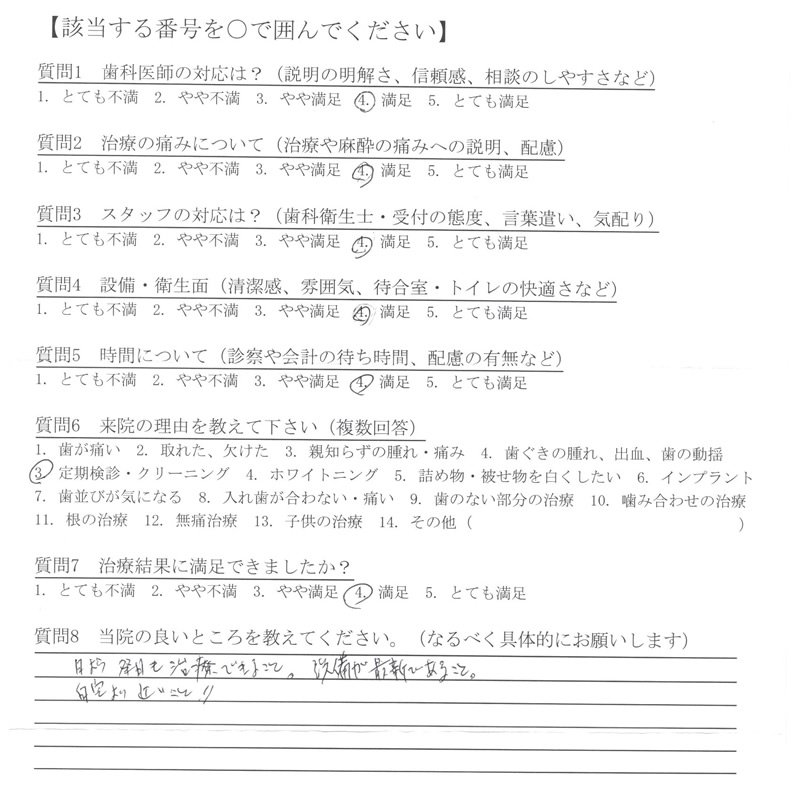 【該当する番号を○で囲んでください】
質問1 歯科医師の対応は？（説明の明解さ、信頼感、相談のしやすさなど）
1. とても不満 2. やや不満 3. やや満足 4. 満足 5. とても満足
質問2 治療の痛みについて（治療や麻酔の痛みへの説明、配慮）
1. とても不満 2. やや不満 3. やや満足 4. 満足 5. とても満足
質問3 スタッフの対応は？（歯科衛生士・受付の態度、言葉遣い、気配り）
1. とても不満 2. やや不満 3. やや満足 4. 満足 5. とても満足
質問4 設備・衛生面（清潔感、雰囲気、待合室・トイレの快適さなど）
1. とても不満 2. やや不満 3. やや満足 4. 満足 5. とても満足
質問5 時間について（診察や会計の待ち時間、配慮の有無など）
1. とても不満 2. やや不満 3. やや満足 4. 満足 5. とても満足
質問6 来院の理由を教えて下さい（複数回答）
1. 歯が痛い 2. 取れた、欠けた 3. 親知らずの腫れ・痛み 4. 歯ぐきの腫れ、出血、歯の動揺
3. 定期検診・クリーニング 4. ホワイトニング 5. 詰め物・被せ物を白くしたい 6. インプラント
7. 歯並びが気になる 8. 入れ歯が合わない・痛い 9. 歯のない部分の治療 10. 噛み合わせの治療
11. 根の治療 12. 無痛治療 13. 子供の治療 14. その他（ ）
質問7 治療結果に満足できましたか？
1. とても不満 2. やや不満 3. やや満足 4. 満足 5. とても満足
質問8 当院の良いところを教えてください。（なるべく具体的にお願いします）
治療できること。設備が最新であること。
自宅より近いこと!!